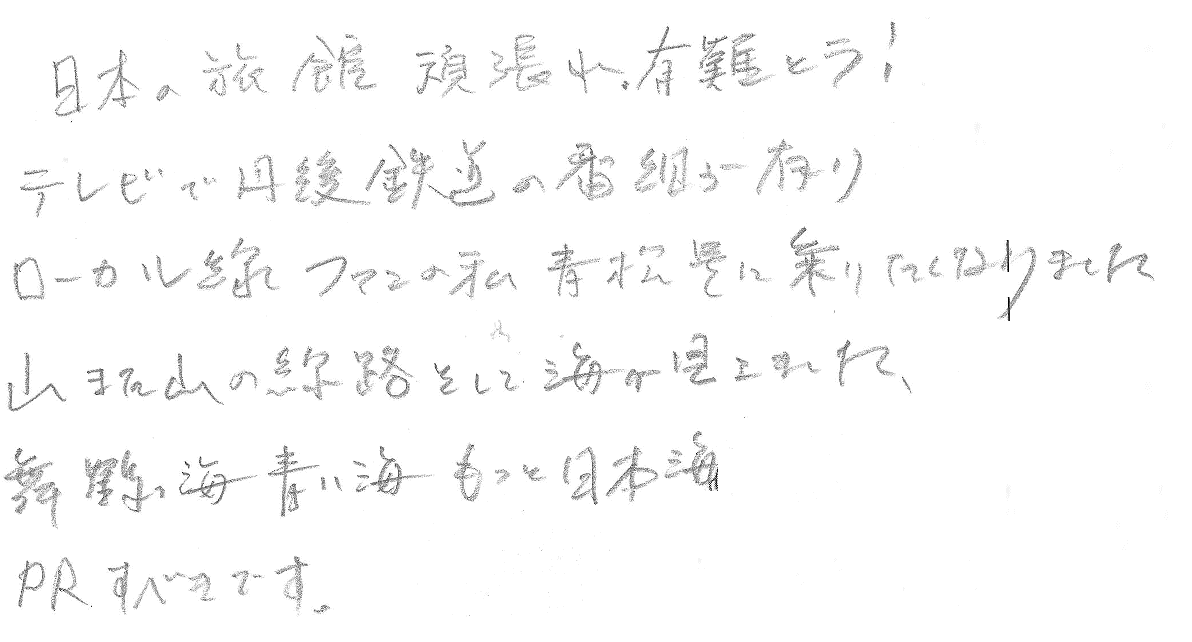 日本の旅館 頑張れ、有難とう!
テレビで丹後鉄道の番組が有り
ローカル線ファンの私 青松号に乗りたくなりました
山また山の線路そして海が見えました、
舞鶴の海青い海もっと日本海
PRすべきです。